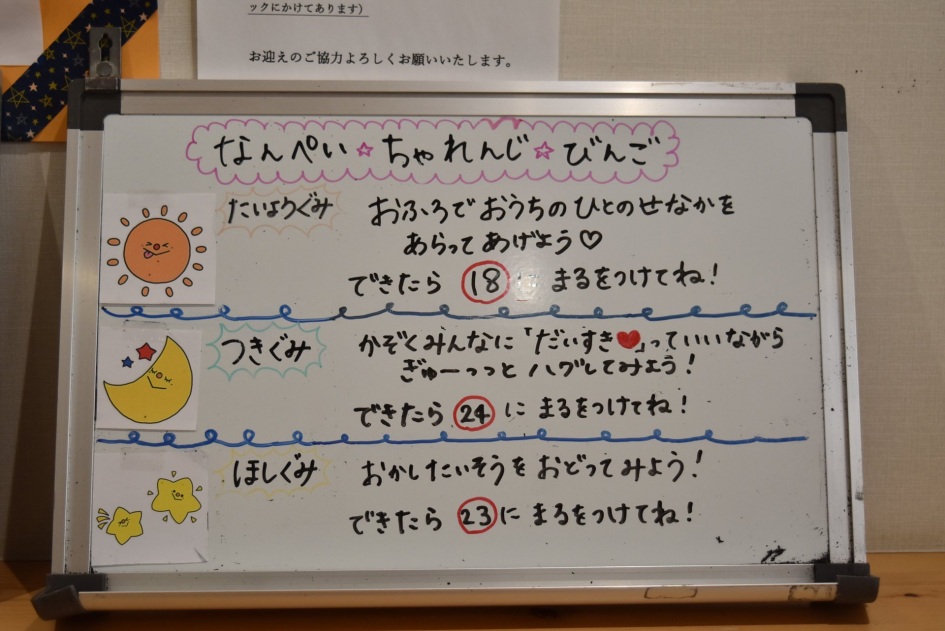 ックにかけてあります）
お迎えのご協力よろしくお願いいたします。
なんぺい☆ちゃれんじ☆びんご
たいようぐみ
おふろで おうちの ひとの せなかを
あらって あげよう♡
できたら 18 に まるをつけてね！
つきぐみ
かぞくみんなに「だいすき♥」っていいながら
ぎゅーっっと ハグしてみよう！
できたら 24 に まるをつけてね！
ほしぐみ
おかしたいそうを おどってみよう！
できたら 23 に まるをつけてね！